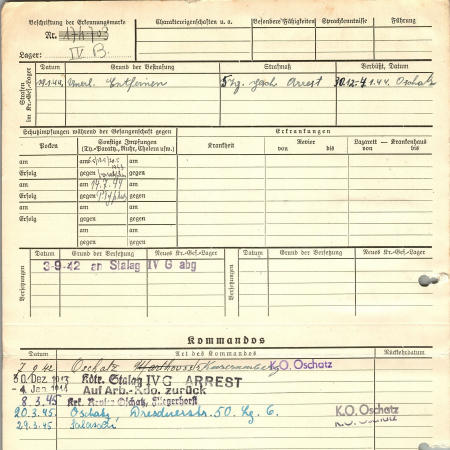 Beschriftung der Erkennungsmarke
Charaktereigenschaften u. a.
Besondere Fähigkeiten
Sprachkenntnisse
Führung
Nr.
Lager: IV B.
Strafen im Kr.-Gef.-Lager
Datum
Grund der Bestrafung
Strafmaß
Verbüßt, Datum
Entfernen
5 Tg. Arrest
30.12-4.1.44. Oschatz
Schutzimpfungen während der Gefangenschaft gegen
Erkrankungen
Pocken
Sonstige Impfungen
(Ty.-Paraty., Ruhr, Cholera usw.)
Krankheit
Revier
von bis
Lazarett — Krankenhaus
von bis
am
am
Erfolg
gegen
gegen
am
am
am
Erfolg
gegen
gegen
am
am
am
Erfolg
gegen
gegen
am
am
gegen
gegen
Versetzungen
Datum
Grund der Versetzung
Neues Kr.-Gef.-Lager
Versetzungen
Datum
Grund der Versetzung
Neues Kr.-Gef.-Lager
3-9-42 an Stalag IV G abg
Kommandos
Datum
Art des Kommandos
Rückkehrdatum
7.9.42 Oschatz K.O. Oschatz
30. Dez. 1943 Kdtr. Stalag IV G ARREST
4. Jan. 1944 Auf Arb.-Kdo. zurück
8.3.45 Oschatz, Fliegerhorst
20.3.45. Oschatz Dresdnerstr. 50. Kg. 6. K.O. Oschatz
29.3.45. K.O. Oschatz